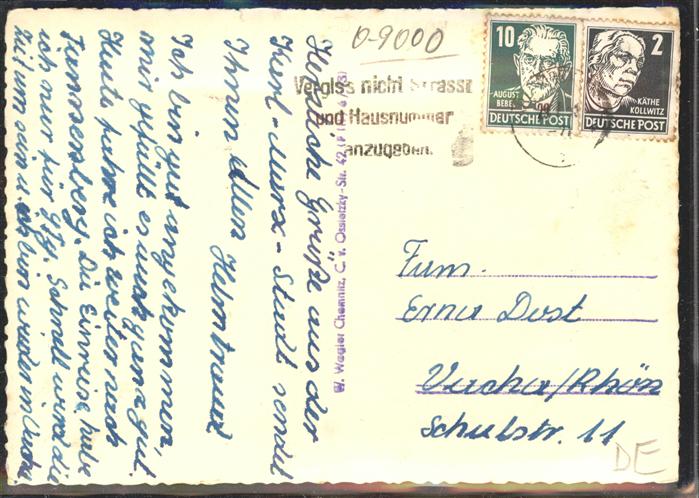 0-9000
Vergiss nicht Strasse
und Hausnummer
anzugeben.
10
AUGUST
BEBEL
DEUTSCHE POST
2
KÄTHE
KOLLWITZ
DEUTSCHE POST
Herzliche Grüße aus der
Karl-Marx-Stadt sendet
Ihnen
Ich bin gut angekommen,
mir gefällt es auch ganz gut.
Heute fahre ich weiter nach
Die Einreise habe
ich nur für Schnell wird die
Zeit um sein u. ich bin wieder in Vacha.
W. Wagler Chemnitz, C. v. Ossietzky-Str. 42
Fam.
Erna Dost
Vacha/Rhön
Schulstr. 11
DE